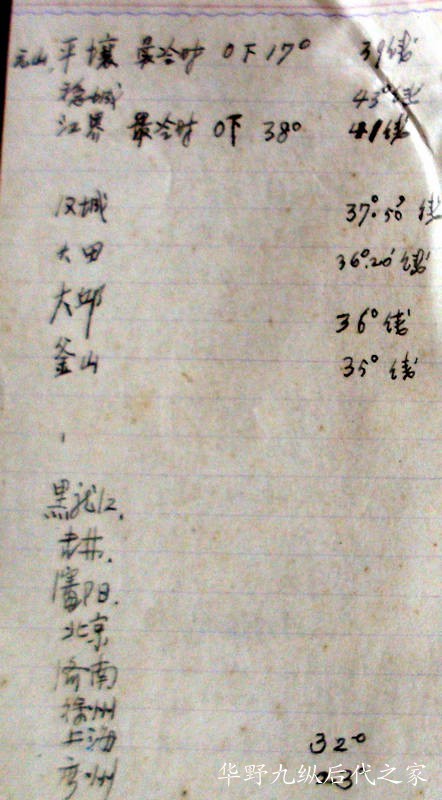 元山 平壤 最冷时 0下17° 39线
稳城 43°线
江界 最冷时 0下 38° 41线
汉城 37°.50′线
大田 36°.20′线
大邱 36°线
釜山 35°线
黑龙江.
吉林.
沈阳.
北京
济南
徐州
上海 32°
广州 23
华野九纵后代之家